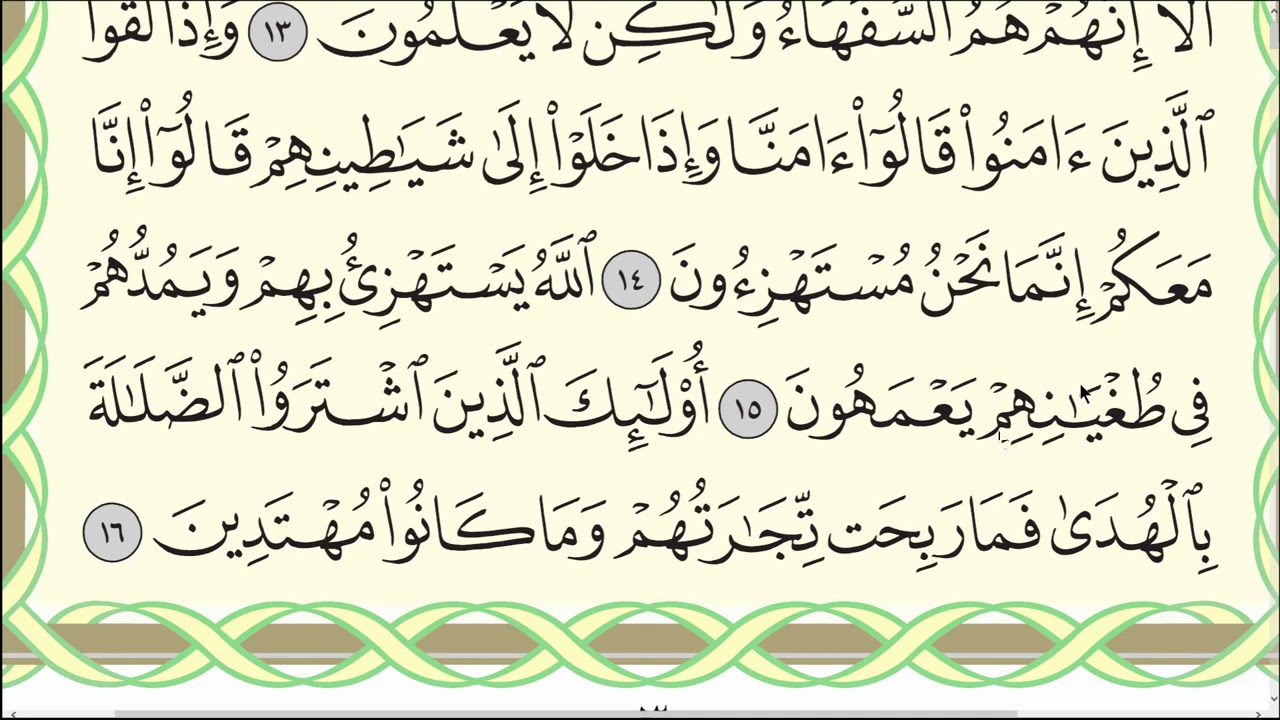 أَلَآ إِنَّهُمْ هُمُ ٱلسُّفَهَآءُ وَلَٰكِن لَّا يَعْلَمُونَ ١٣ وَإِذَا لَقُوا۟
ٱلَّذِينَ ءَامَنُوا۟ قَالُوٓا۟ ءَامَنَّا وَإِذَا خَلَوْا۟ إِلَىٰ شَيَٰطِينِهِمْ قَالُوٓا۟ إِنَّا
مَعَكُمْ إِنَّمَا نَحْنُ مُسْتَهْزِءُونَ ١٤ ٱللَّهُ يَسْتَهْزِئُ بِهِمْ وَيَمُدُّهُمْ
فِى طُغْيَٰنِهِمْ يَعْمَهُونَ ١٥ أُو۟لَٰٓئِكَ ٱلَّذِينَ ٱشْتَرَوُا۟ ٱلضَّلَٰلَةَ
بِٱلْهُدَىٰ فَمَا رَبِحَت تِّجَٰرَتُهُمْ وَمَا كَانُوا۟ مُهْتَدِينَ ١٦